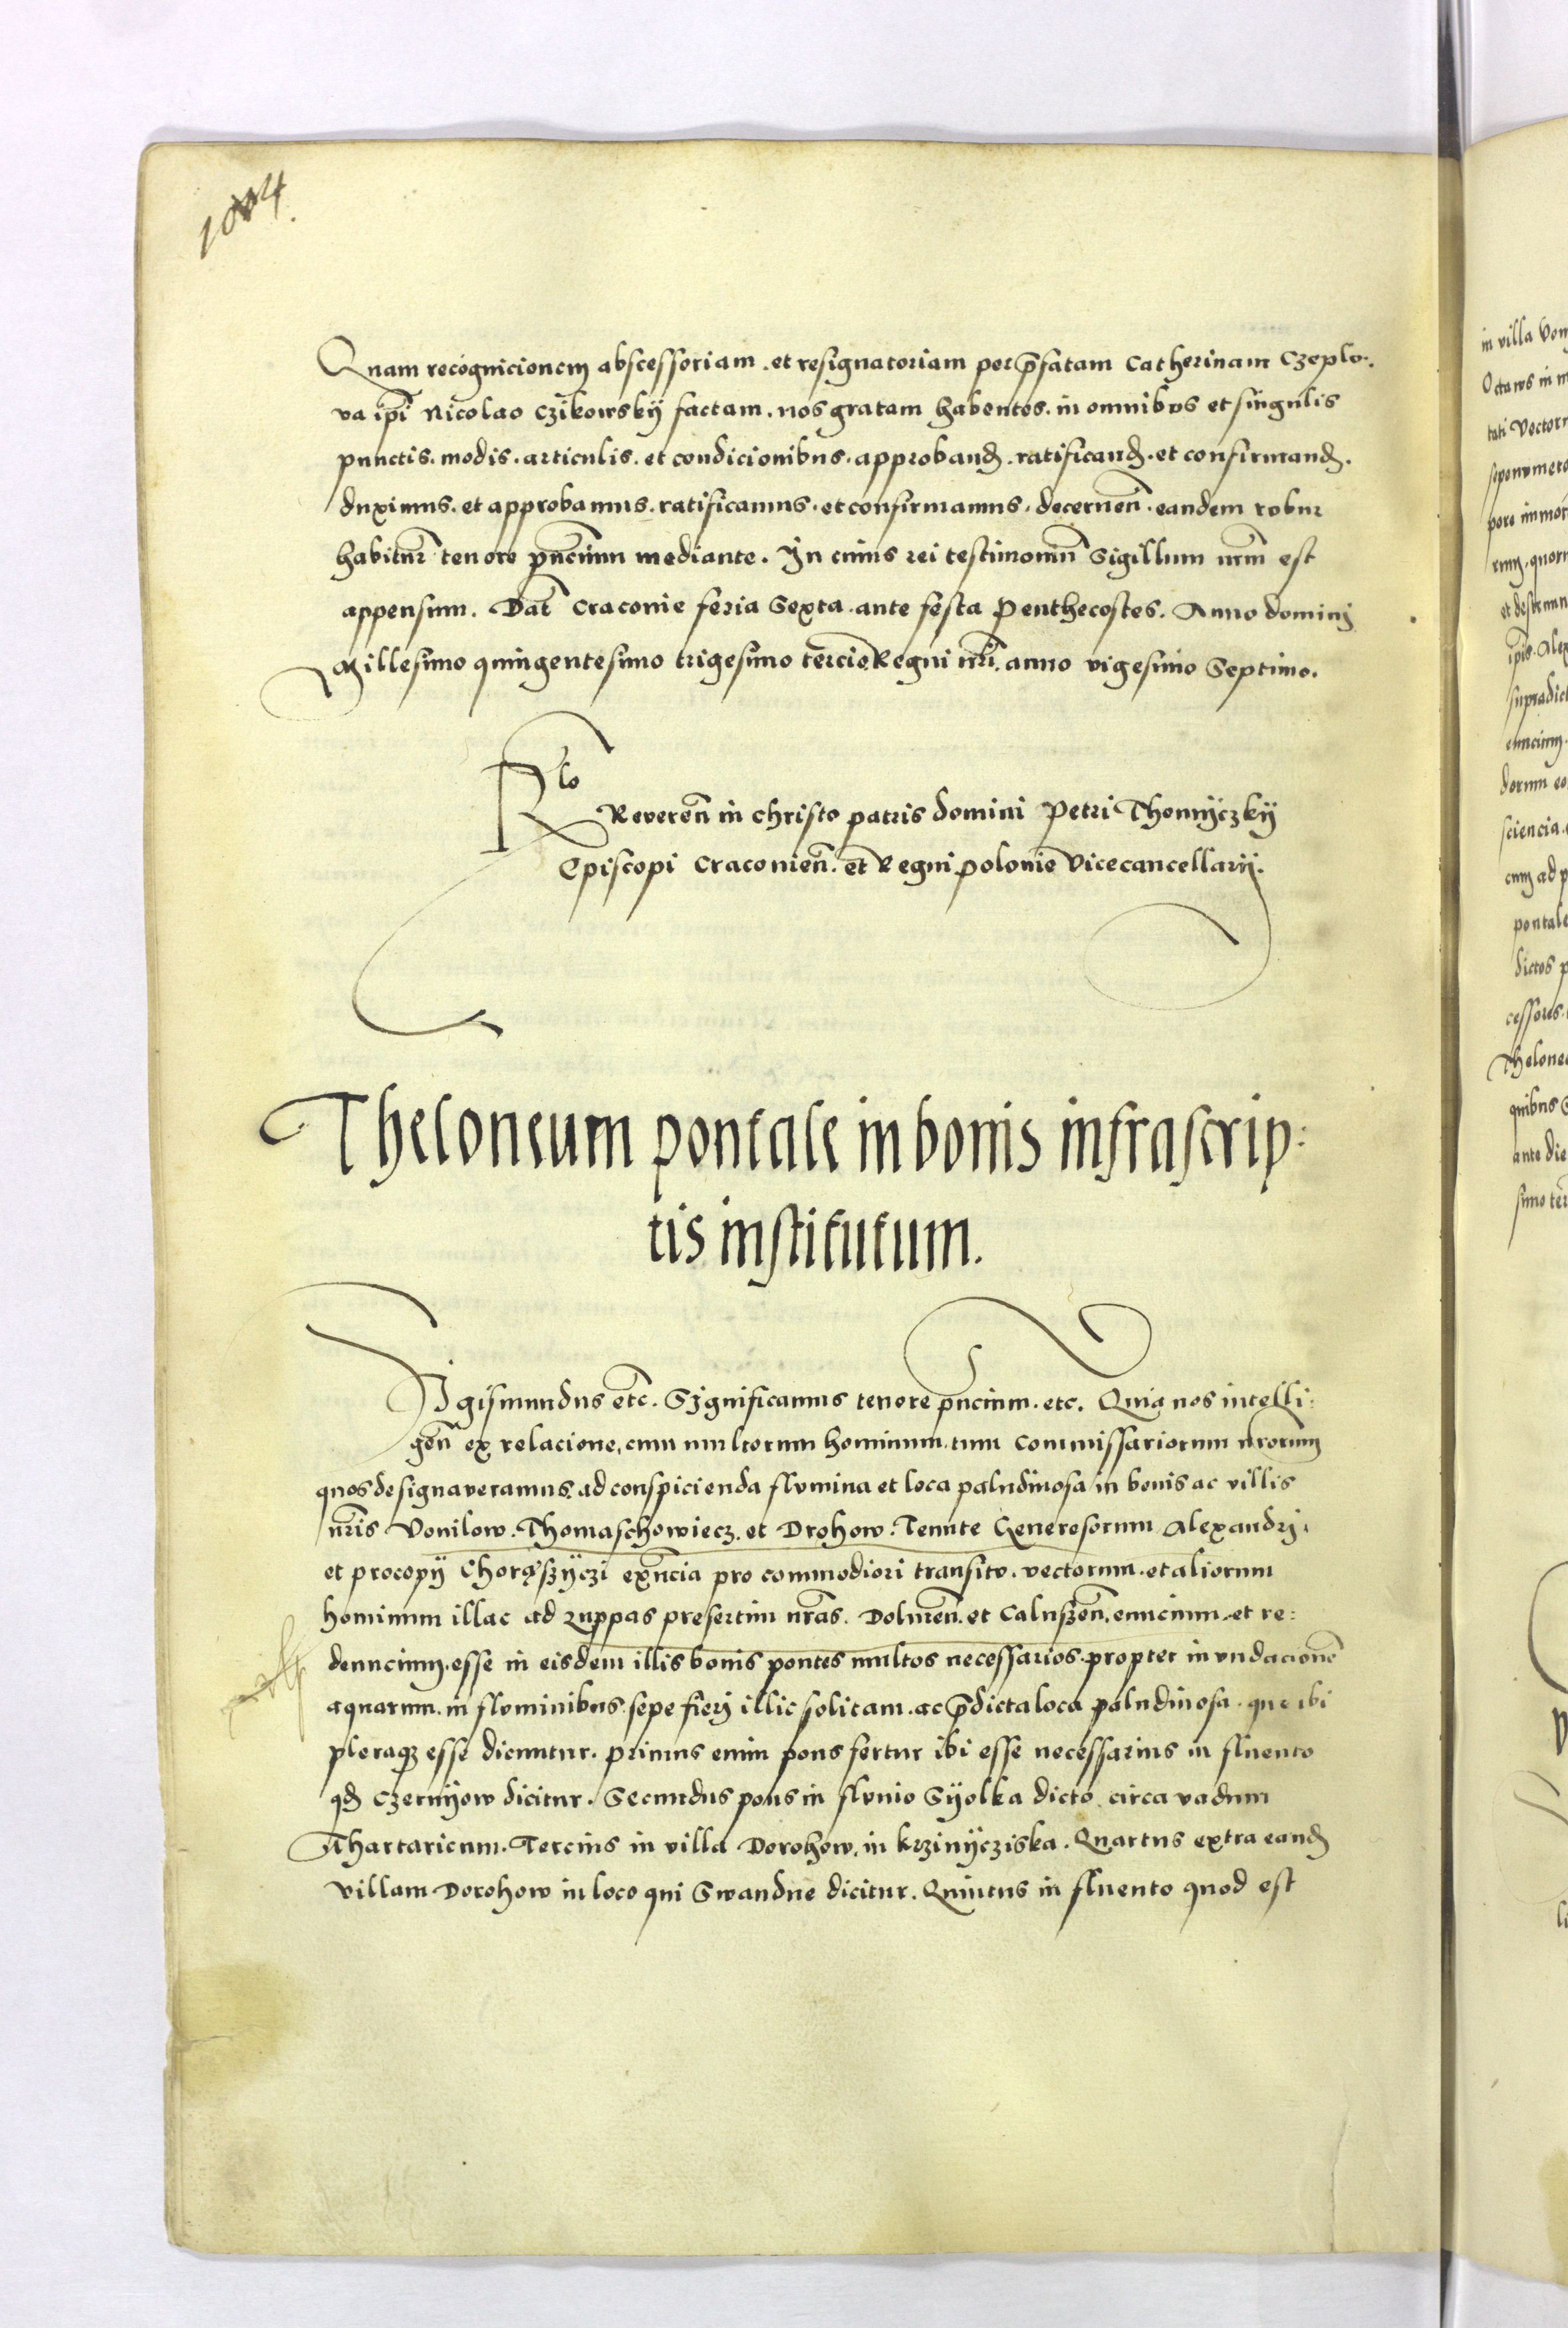 Quam recognicionem abscessoriam. et resignatoriam per p̄fatam Catherinam Czeplo.
va ip̄i Nicolao Czikowskÿ factam. nos gratam habentes. in omnibus et singulis
punctis. modis. articulis. et condicionibus. approband. ratificand. et confirmand.
duximus. et approbamus. ratificamus. et confirmamus. decernen̄. eandem robur
habitur̄ tenore pn̄cium mediante. In cuius rei testimoniū Sigillum nrm̄ est
appensum. Dat̄ Craconie feria Sexta ante festa Penthecostes. Anno dominj
Millesimo quingentesimo trigesimo tercio. Regni nrī. anno vigesimo Septimo.
Rlo
Reveren̄ in christo patris domini Petri Thomÿczkÿ
Episcopi Craconien̄. et Regni polonie Vicecancellarij.
Theloneum pontale in bonis infrascrip:
tis institutum.
Sigismundus etc̄. Significamus tenore pn̄cium. etc. Quia nos intelli:
gen̄ ex relacione, cum multorum hominum. tum Commissariorum nrorum
quos designaveramus. ad conspicienda flumina et loca paludinosa in bonis ac villis
nrīs Vonilow. Thomaschowiecz. et Drohow. Tenute Generosorum Alexandrj.
et procopÿ Choręszÿczi exn̄cia pro commodiori transitu. vectorum. et aliorum
hominum illac ad zuppas presertim nrās. Dolinen̄. et Caluszen̄. euncium. et re:
deuncium. esse in eisdem illis bonis pontes multos necessarios. propter inundacionē
aquarum. in fluminibus. sepe fierj illic solitam. ac p̄dicta loca paludinosa. que ibi
pleraq esse dicuntur. primus enim pons fertur ibi esse necessarius in fluento
qd Czernÿow dicitur. Secundus pons in fluuio Sÿolka dicto circa vadum
Thartaricum. Tercius in villa Dorohow. in krzinÿcziska. Quartus extra eand
villam Dorohow in loco qui Swandne dicitur. Quintus in fluento quod est